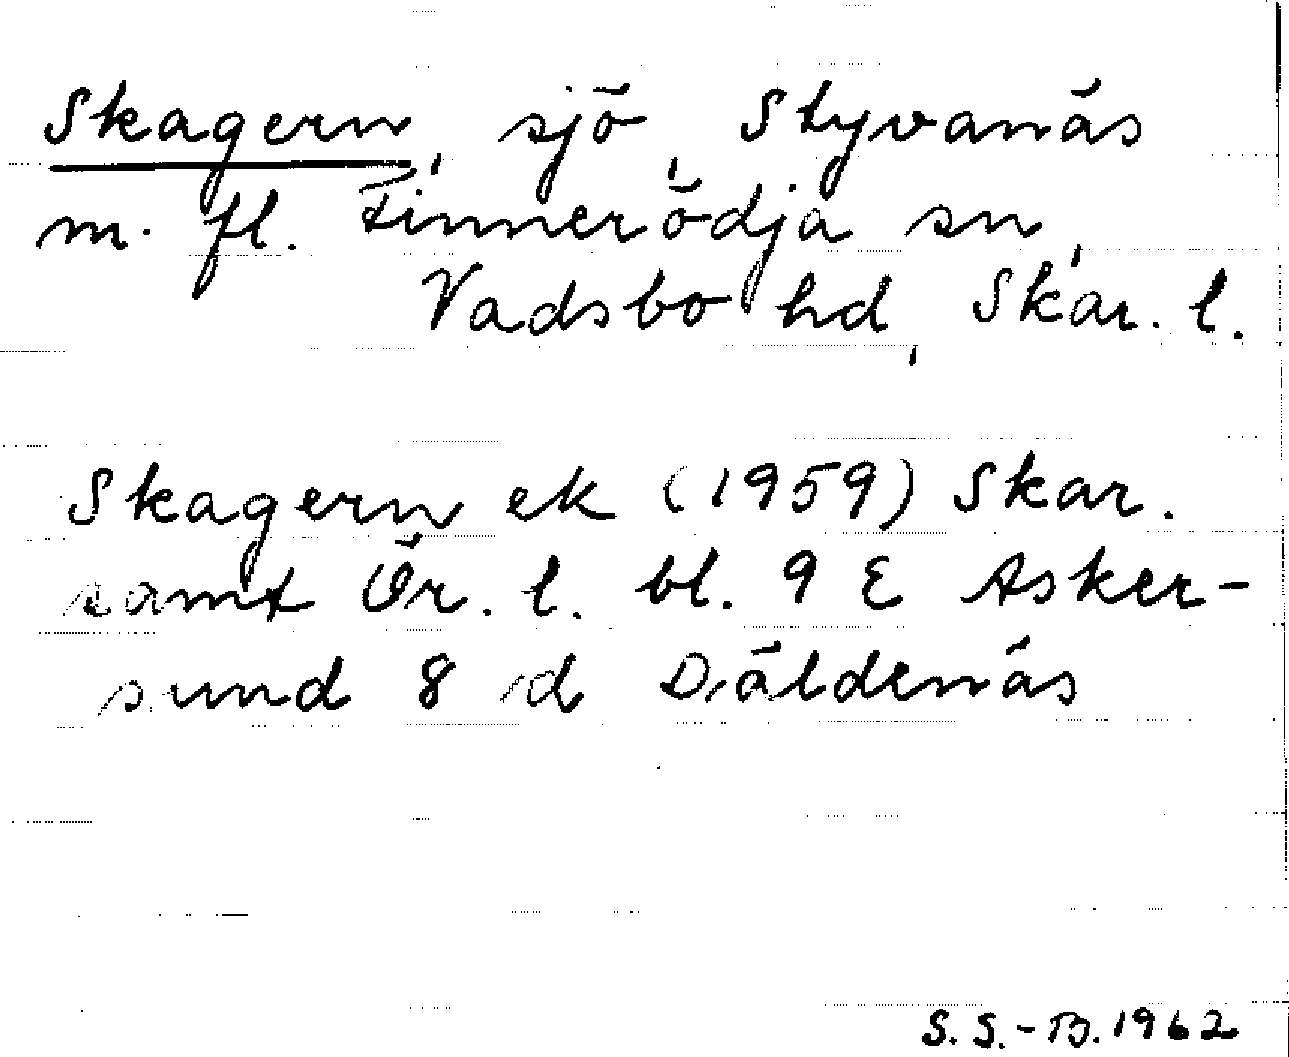 Skagern, sjö, Styvanäs
m. fl. Finnerödja sn,
Vadsbo hd, Skar. l.
Skagern ek (1959) Skar.
samt Ör. l. bl. 9 E Asker-
sund 8 d Däldenäs
S. S.-B. 1962